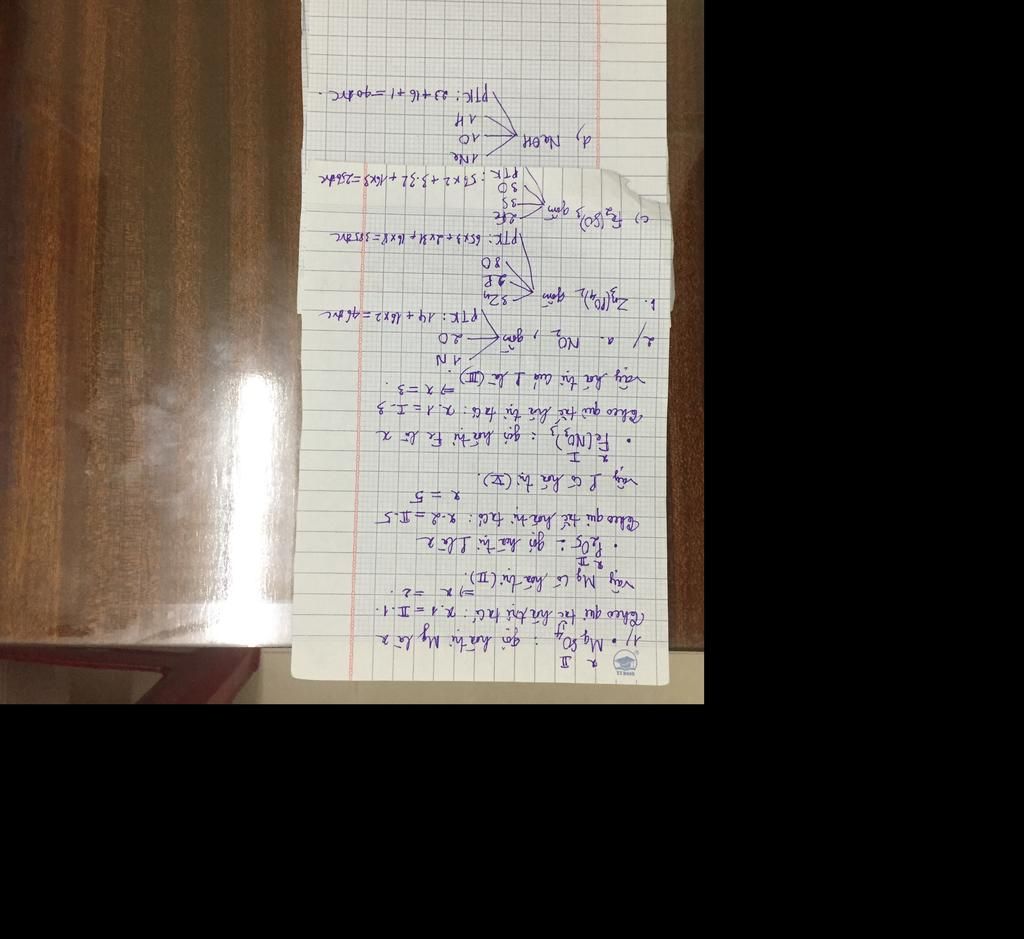 x II
1/ • MgSO4 : gọi hoá trị Mg là x
Theo qui tắc hoá trị ta có: x.1 = II.1
=> x = 2.
Vậy Mg có hoá trị (II).
x II
• P2O5 : gọi hoá trị P là x
Theo qui tắc hoá trị ta có: x.2 = II.5
x = 5
Vậy P có hoá trị (V).
x I
• Fe(NO3)3 : gọi hoá trị Fe là x
Theo qui tắc hoá trị ta có: x.1 = I.3
=> x = 3.
Vậy hoá trị của là (III).
2/ a. NO2, gồm
1N
2O
PTK: 14 + 16x2 = 46đvC
b. Zn3(PO4)2 gồm
3Zn
2P
8O
PTK: 65x3 + 2x31 + 16x8 = 385đvC
c) Fe2(SO)3 gồm
2Fe
3S
3O
PTK: x2 + 3.32 + 16x3 = 256đvC
d, NaOH
1Na
1O
1H
PTK: 23+16+1 = 40đvC.